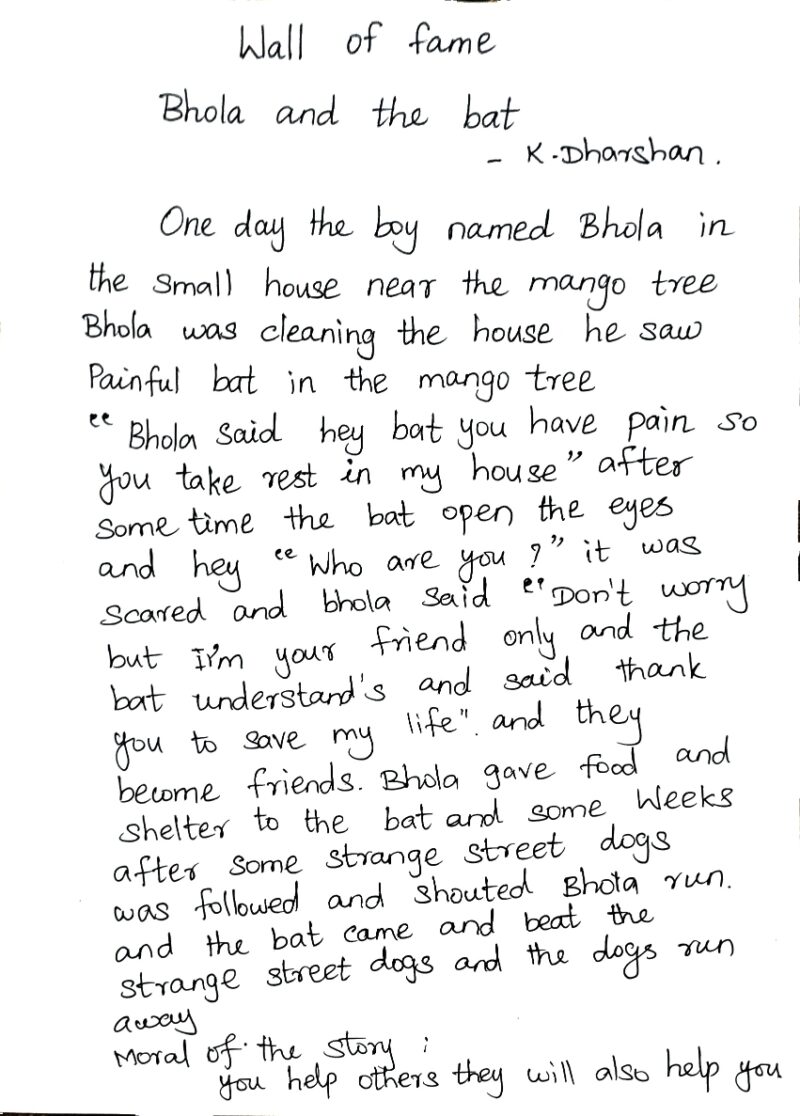 Wall of fame
Bhola and the bat
- K.Dharshan.
One day the boy named Bhola in
the small house near the mango tree
Bhola was cleaning the house he saw
Painful bat in the mango tree
“ Bhola said hey bat you have pain so
you take rest in my house” after
some time the bat open the eyes
and hey “ Who are you ?” it was
scared and bhola said “ Don't worry
but I'm your friend only and the
bat understand's and said thank
you to save my life". and they
become friends. Bhola gave food and
shelter to the bat and some weeks
after some strange street dogs
was followed and shouted Bhola run.
and the bat came and beat the
strange street dogs and the dogs run
away
Moral of the story :
you help others they will also help you